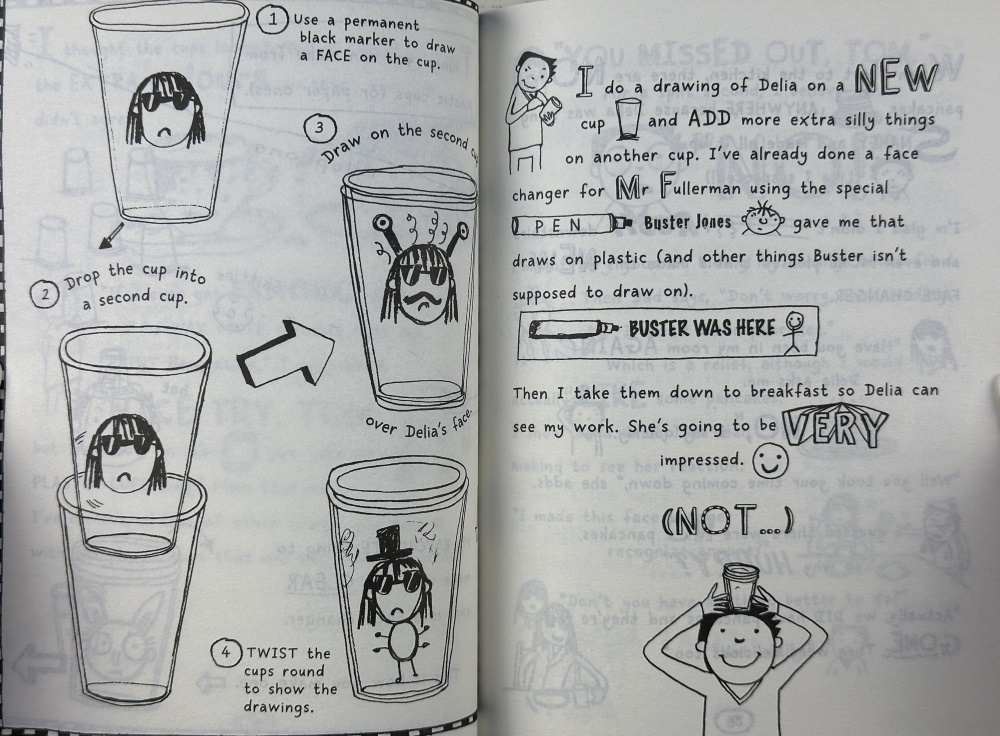 1 Use a permanent
black marker to draw
a FACE on the cup.
2 Drop the cup into
a second cup.
3 Draw on the second cup
over Delia's face.
4 TWIST the
cups round
to show the
drawings.
I do a drawing of Delia on a NEW
cup and ADD more extra silly things
on another cup. I've already done a face
changer for Mr Fullerman using the special
PEN Buster Jones gave me that
draws on plastic (and other things Buster isn't
supposed to draw on).
BUSTER WAS HERE
Then I take them down to breakfast so Delia can
see my work. She's going to be VERY
impressed.
(NOT...)